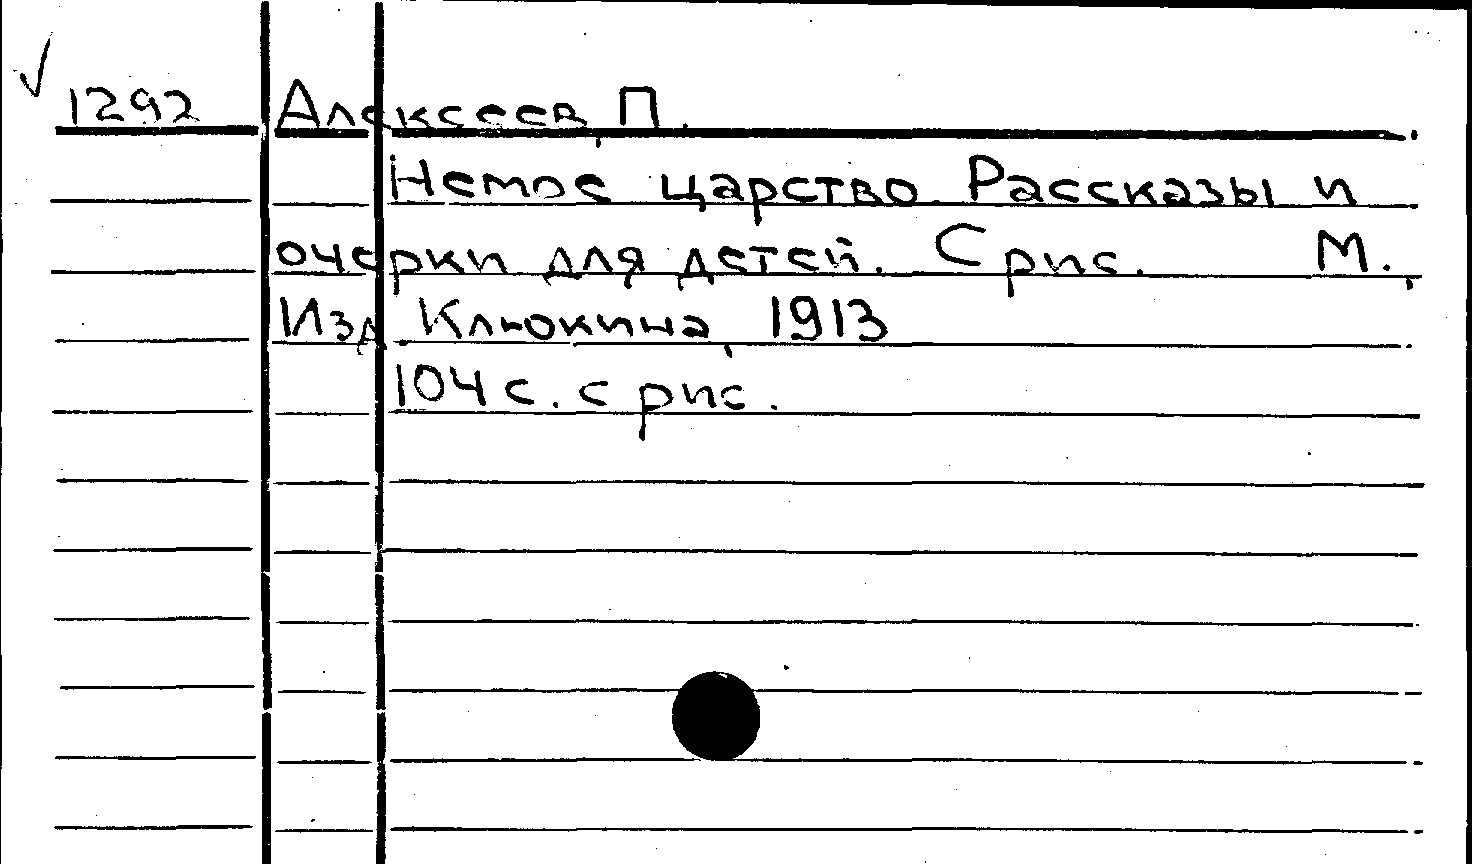 1292 Алексеев, П.
Немое царство. Рассказы и
очерки для детей. С рис. М.,
Изд. Клюкина, 1913
104 с. с рис.